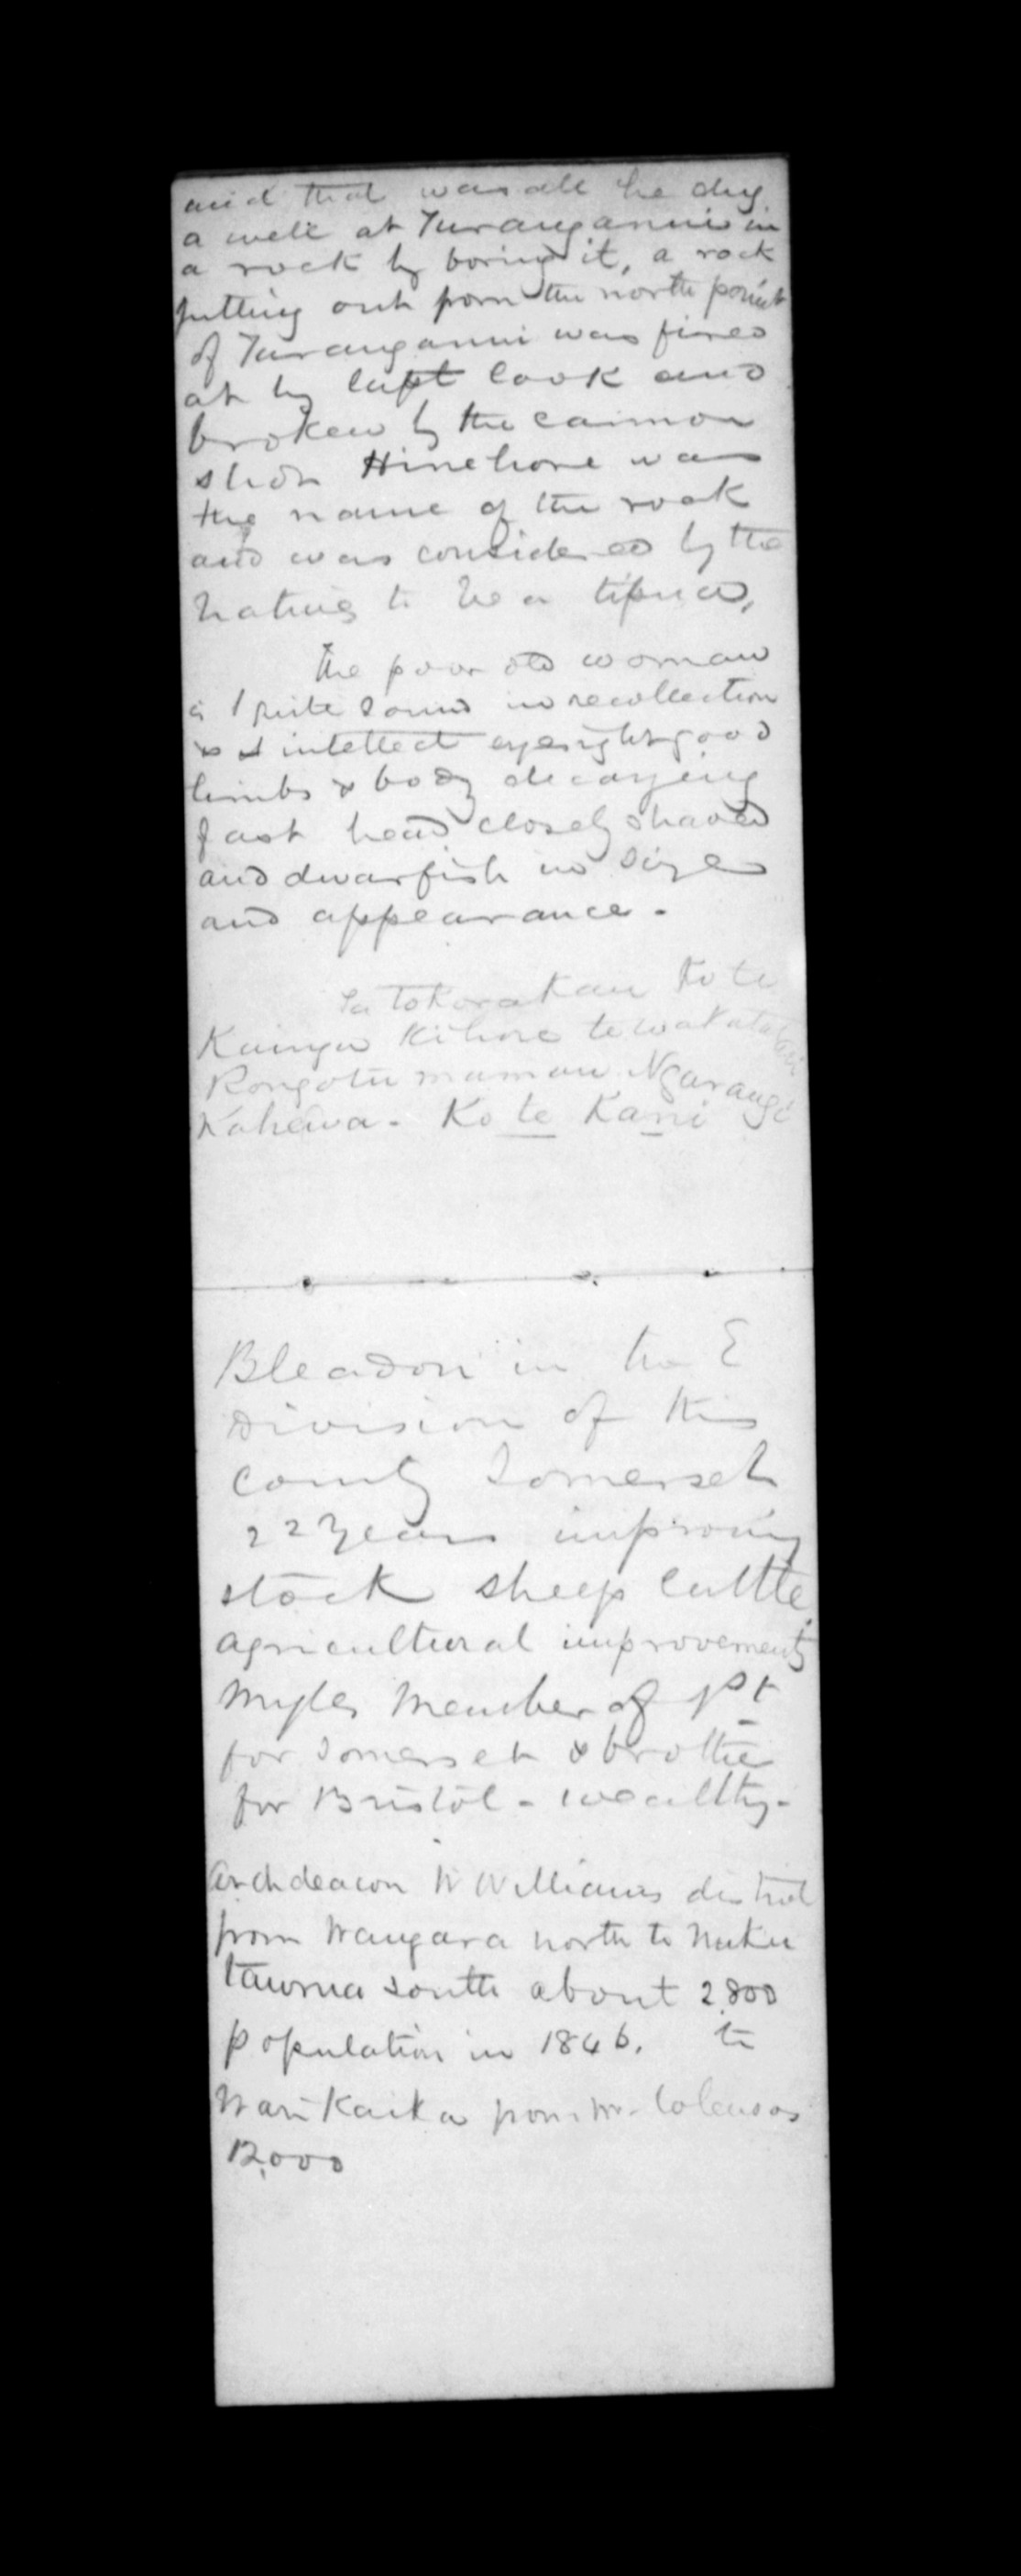 and that was all he dug
a well at Turanganui in
a rock by boring it, a rock
jutting out from the north point
of Turanganui was fired
at by Capt Cook and
broken by the cannon
shot Hinehore was
the name of the rock
and was considered by the
natives to be a tipua,
The poor old woman
is quite sound in recollection
& intellect eyesight good
limbs & body decaying
fast head closely shaved
and dwarfish in size
and appearance.
Ko te
Kainga Kihore te
Rongotu mamau Ngarangi
Kahewa. Ko te Kani
Bleadon in the E
Division of this
county Somerset
22 years improving
stock sheep cattle
agricultural improvements
Myles Member of Pt
for Somerset & brother
for Bristol - wealthy -
Archdeacon W Williams district
from Wangara north to Nuku
taurua south about 2,800
population in 1846. to
Warikaika from Mr Colensos
12,000